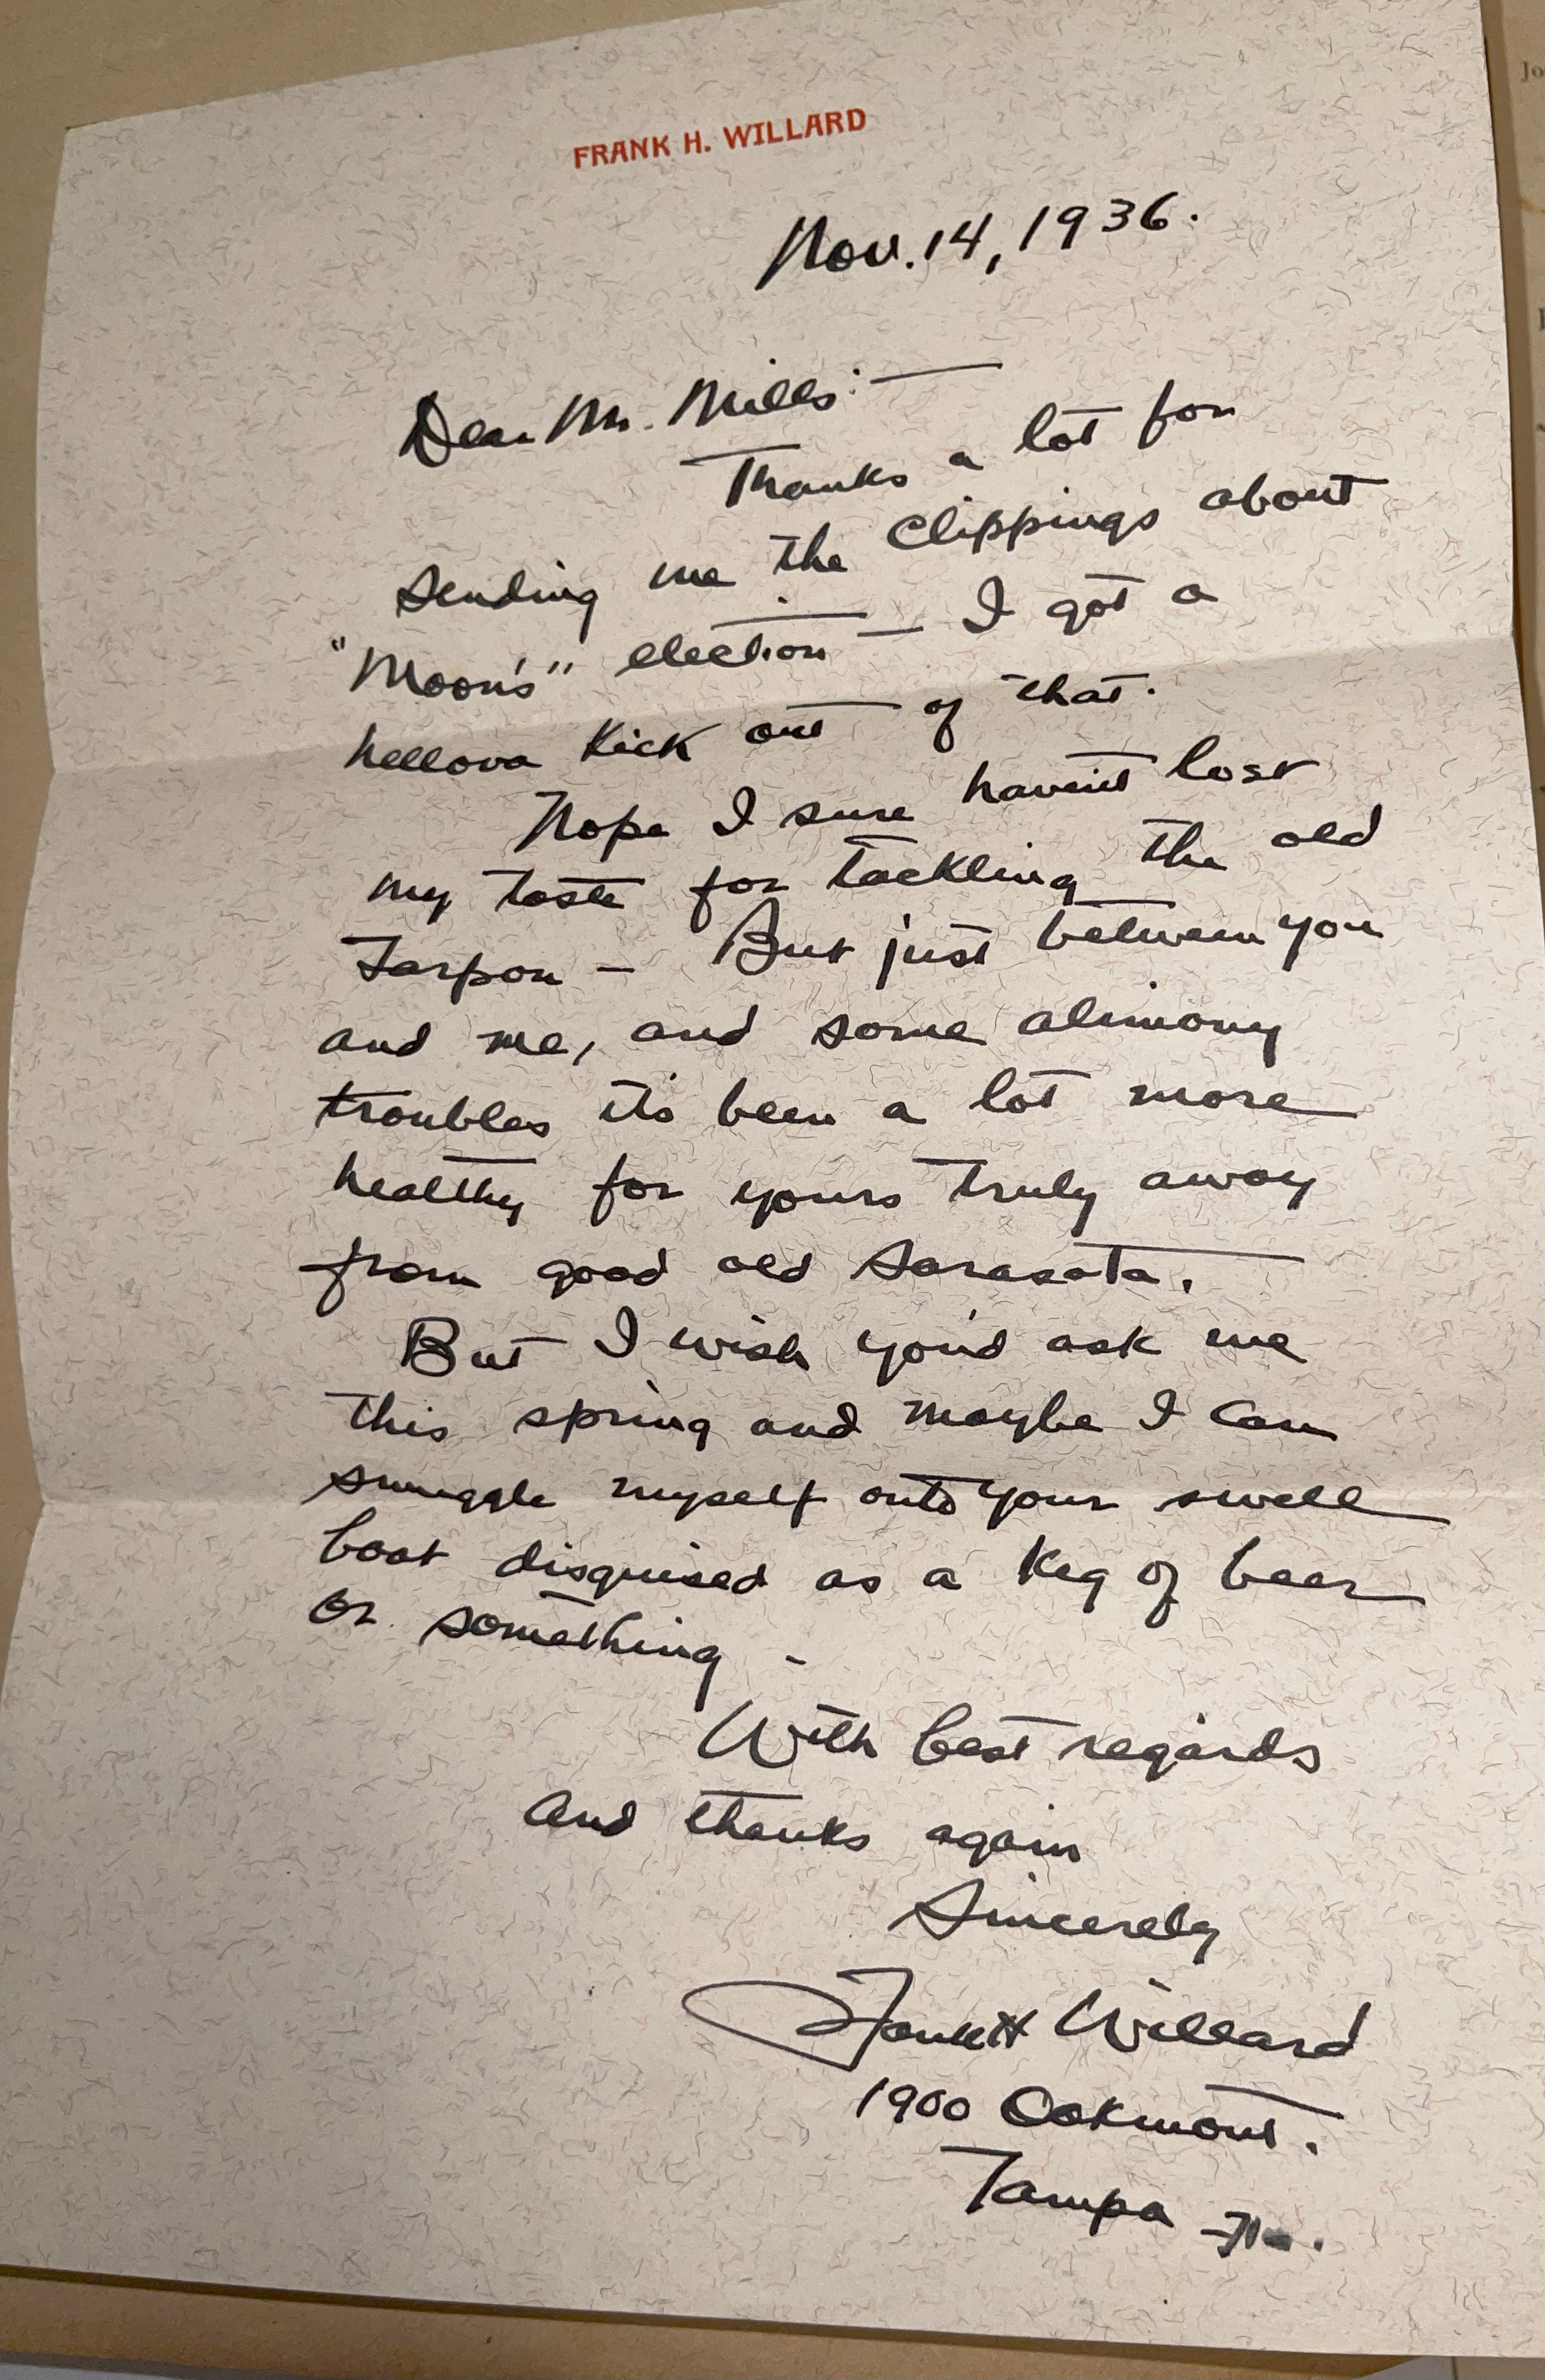 FRANK H. WILLARD
Nov. 14, 1936.
Dear Mr. Mills: —
Thanks a lot for
sending me the clippings about
"Moon's" election — I got a
hellova kick out of that.
Nope I sure haven't lost
my taste for tackling the old
Tarpon — But just between you
and me, and some alimony
troubles it's been a lot more
healthy for yours truly away
from good old Sarasota.
But I wish you'd ask me
this spring and maybe I can
smuggle myself onto your swell
boat disguised as a keg of beer
or something -
With best regards
and thanks again
Sincerely
Frank H Willard
1900 Oakmont.
Tampa Fla.
Jo